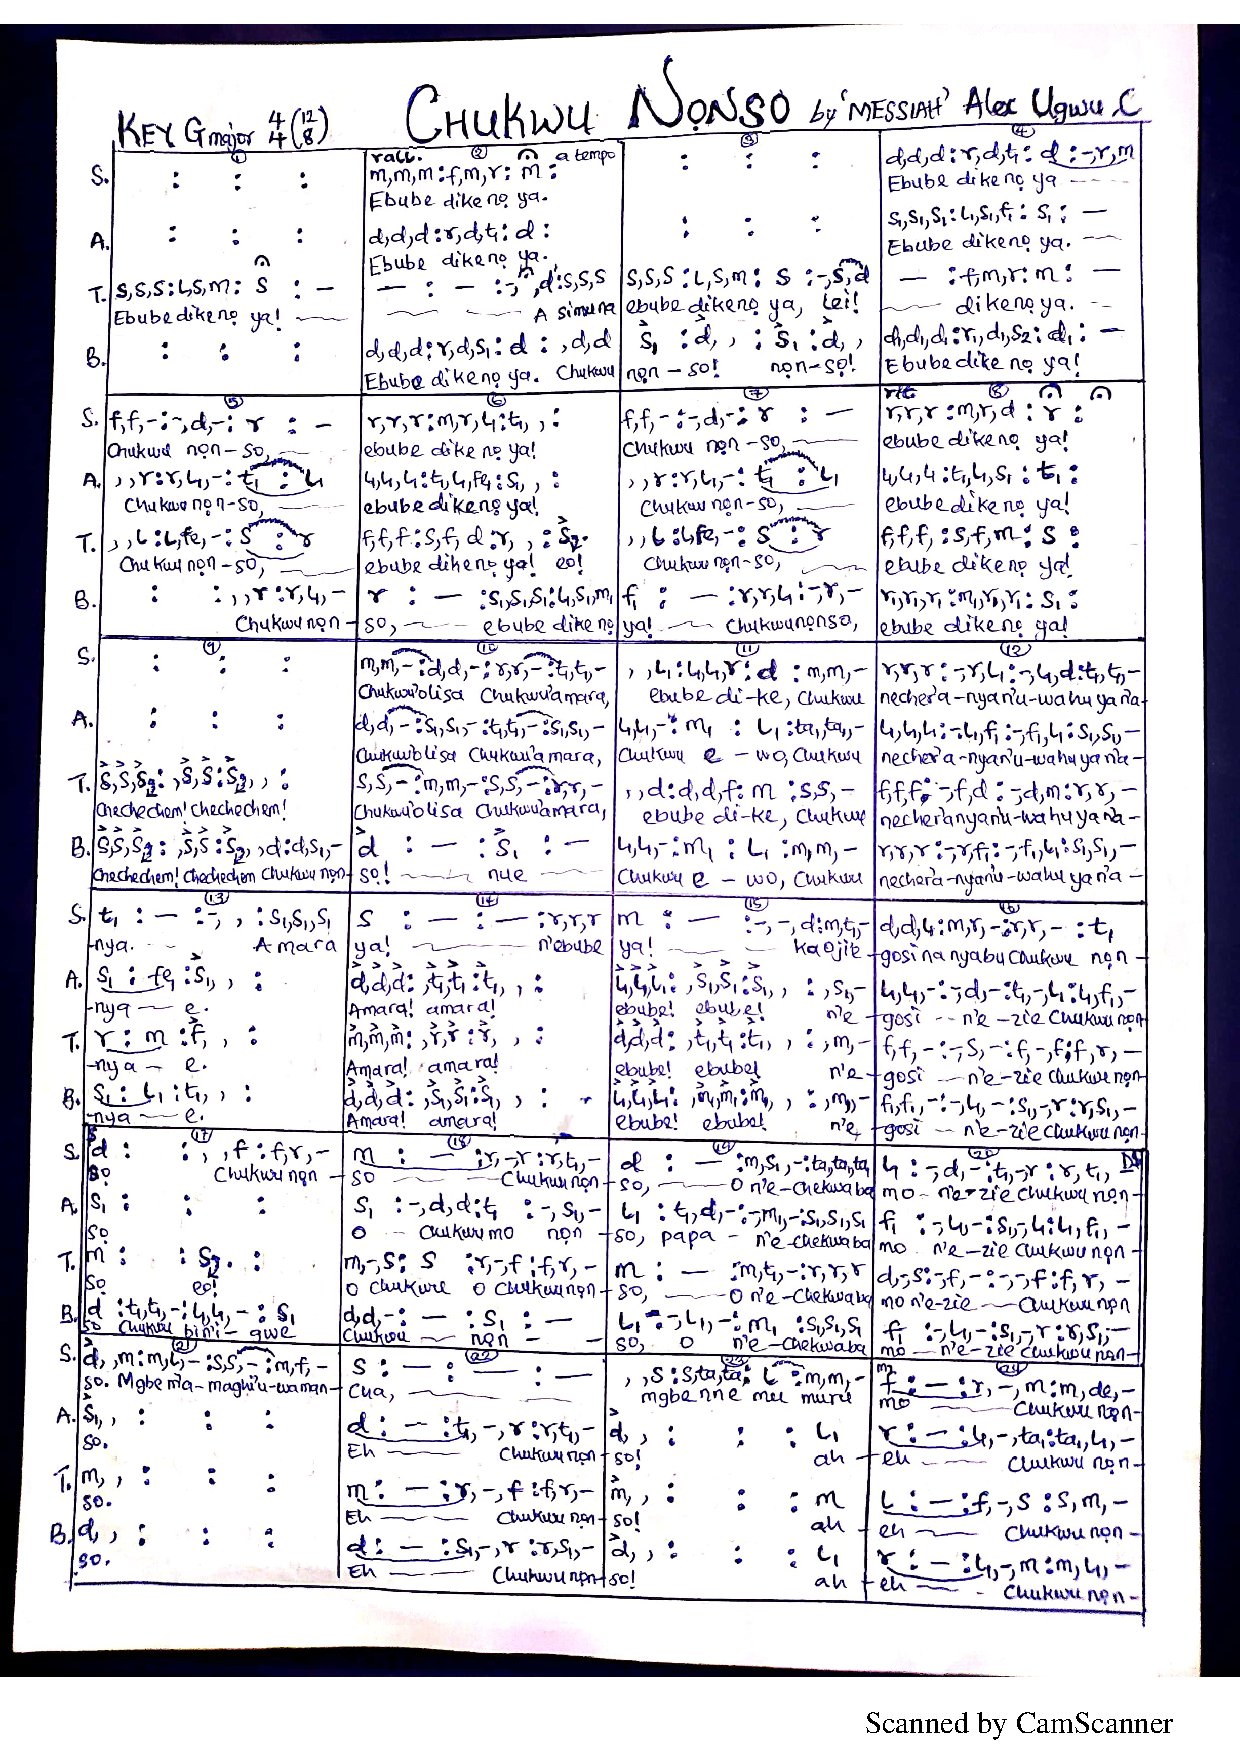 CHUKWU NỌNSO by 'MESSIAH' Alex Ugwu .C
KEY G major 4/4 (12/8)
① rall. ② a tempo ③ ④
S. : : : m,m,m:f,m,r: m: : : : d,d,d:r,d,t₁: d:-,r,m
Ebube dikenọ ya. Ebube dikenọ ya
A. : : : d,d,d:r,d,t₁: d: : : : s₁,s₁,s₁:l₁,s₁,f₁: s₁: —
Ebube dikenọ ya. Ebube dikenọ ya.
T. s,s,s:l,s,m: s : — — : — :-,,d:s,s,s s,s,s:l,s,m: s :-,s,d — :f,m,r: m: —
Ebube dikenọ ya! A simuna ebube dikenọ ya, Lei! dikenọ ya.
B. : : : d,d,d:r,d,s₁: d : ,d,d s₁ :d, , : s₁ :d, d₁,d₁,d₁:r₁,d₁,s₂: d₁: —
Ebube dikenọ ya. Chukwu nọn-so! nọn-sọ! Ebube dikenọ ya!
⑤ ⑥ ⑦ rit ⑧
S. f,f,-:-,d,-: r : — r,r,r:m,r,l₁:t₁, , : f,f,-:-,d,-: r : — r,r,r:m,r,d: r :
Chukwu nọn-so, ebube dike nọ ya! Chukwu nọn-so, ebube dikenọ ya!
A. , ,r:r,l₁,-:t₁ :l₁ l₁,l₁,l₁:t₁,l₁,fe₁:s₁, , : , ,r:r,l₁,-:t₁ :l₁ l₁,l₁,l₁:t₁,l₁,s₁: t₁:
Chukwu nọn-so, ebube dikenọ ya! Chukwu nọn-so, ebube dikenọ ya!
T. , ,l:l,fe,-: s :r f,f,f:s,f,d:r, , :s₂. , ,l:l,fe,-: s :r f,f,f,:s,f,m: s :
Chukwu nọn-so, ebube dikenọ ya! eo! Chukwu nọn-so, ebube dikenọ ya!
B. : : , ,r:r,l₁,- r : — :s₁,s₁,s₁:l₁,s₁,m₁ f₁ : — :r,r,l₁:-,r,- r₁,r₁,r₁:m₁,r₁,r₁: s₁:
Chukwu nọn- so, ebube dike nọ ya! Chukwunọnso, ebube dikenọ ya!
⑨ ⑩ ⑪ ⑫
S. : : : m,m,-:d,d,-:r,r,-:t₁,t₁,- , ,l₁:l₁,l₁,r:d :m,m,- r,r,r:-,r,l₁:-,l₁,d:t₁,t₁,-
Chukwu'olisa Chukwu'amara, ebube di-ke, Chukwu nechera-nyan'u-wahu ya n'a-
A. : : : d,d,-:s₁,s₁,-:t₁,t₁,-:s₁,s₁,- l₁,l₁,-: m₁ : l₁:ta₁,ta₁,- l₁,l₁,l₁:-,l₁,f₁:-,f₁,l₁:s₁,s₁,-
Chukwu'olisa Chukwu'amara, Chukwu e - wo, Chukwu nechera-nyan'u-wahu ya n'a-
T. s,s,s₂: ,s,s:s₂, , : s,s,-:m,m,-:s,s,-:r,r,- , ,d:d,d,f: m :s,s,- f,f,f:-,f,d:-,d,m:r,r,-
Chechechem! Chechechem! Chukwu'olisa Chukwu'amara, ebube di-ke, Chukwu necheranyan'u-wahu ya n'a-
B. s,s,s₂: ,s,s:s₂, ,d:d,s₁,- d : — :s₁ :— l₁,l₁,-:m₁ : l₁ :m,m,- r,r,r:-,r,f₁:-,f₁,l₁:s₁,s₁,-
Chechechem! Chechechem Chukwu nọn- so! nue Chukwu e - wo, Chukwu nechera-nyan'u-wahu ya n'a-
⑬ ⑭ ⑮ ⑯
S. t₁ : — :-, , :s₁,s₁,s₁ s : — : — :r,r,r m : — :-,-,d:m,t₁,- d,d,l₁:m,r,-:r,r,- :t₁
-nya. Amara ya! n'ebube ya! kaojie- -gosi na nyabu Chukwu nọn-
A. s₁ : fe₁ :s₁, , : d,d,d: ,t₁,t₁:t₁, , : l₁,l₁,l₁: ,s₁,s₁:s₁, , : ,s₁,- l₁,l₁,-:-,d,-:t₁,-,l₁:l₁,f₁,-
-nya — e. Amara! amara! ebube! ebube! n'e -gosi -- n'e-zie Chukwu nọn-
T. r : m :f, , : m,m,m: ,r,r:r, , : d,d,d: ,t₁,t₁:t₁, , : ,m,- f,f,-:-,s,-:f,-,f:f,r,-
-nya — e. Amara! amara! ebube! ebube! n'e -gosi — n'e-zie Chukwu nọn-
B. s₁ : l₁ :t₁, , : d,d,d: ,s₁,s₁:s₁, , : l₁,l₁,l₁: ,m₁,m₁:m₁, , : ,m₁,- f₁,f₁,-:-,l₁,-:s₁,-,r:r,s₁,-
-nya — e. Amara! amara! ebube! ebube! n'e, -gosi — n'e-zie Chukwu nọn-
⑰ ⑱ ⑲ ⑳ DS
S. d : : , ,f:f,r,- m : — :r,-,r:r,t₁,- d : — :m,s₁,-:ta₁,ta₁,ta₁ l₁:-,d,-:t₁,-,r:r,t₁,
so Chukwu nọn - so — Chukwu nọn - so, O n'e-Chekwaba mo -- n'e-zie Chukwu nọn-
A. s₁ : : s₁ :-,d,d:t₁ :-,s₁,- l₁ : t₁,d,-:-,m₁,-:s₁,s₁,s₁ f₁ :-,l₁,-:s₁,-,l₁:l₁,f₁,-
so O - Chukwu mo nọn - so, papa - n'e-Chekwaba mo n'e-zie Chukwu nọn-
T. m : : s₂. : m,-,s: s :r,-,f:f,r,- m : — :m,t₁,-:r,r,r d,-,s:-,f,-:-,-,f:f,r,-
so eo! O Chukwu O Chukwu nọn- so, O n'e-Chekwaba mo n'e-zie — Chukwu nọn
B. d :t₁,t₁,-:l₁,l₁,-: s₁ d,d,-:— :s₁ :— l₁:-,l₁,-:m₁ :s₁,s₁,s₁ f₁ :-,l₁,-:s₁,-,r:r,s₁,-
so Chukwu bi n'i- gwe Chukwu nọn - so, O n'e-Chekwaba mo — n'e-zie Chukwu nọn-
㉑ ㉒ ㉓ ㉔
S. d, ,m:m,l,-:s,s,-:m,f,- s : — : — : — , ,s:s,ta,ta:l :m,m,- f : — :r,-,m:m,de,-
so. Mgbe m'a-maghi'u-wa man- Cua, mgbe nne mu muru mo Chukwu nọn-
A. s₁, , : : : d : — :t₁,-,r:r,t₁,- d, , : : : l₁ r : — :l₁,-,ta₁:ta₁,l₁,-
so. Eh Chukwu nọn- so! ah - eh Chukwu nọn-
T. m, , : : : m : — :r,-,f:f,r,- m, , : : : m l : — :f,-,s:s,m,-
so. Eh Chukwu nọn- so! ah - eh Chukwu nọn-
B. d, , : : : d : — :s₁,-,r:r,s₁,- d, , : : : l₁ r : — :l₁,-,m:m,l₁,-
so. Eh Chukwu nọn- so! ah - eh Chukwu nọn-
Scanned by CamScanner